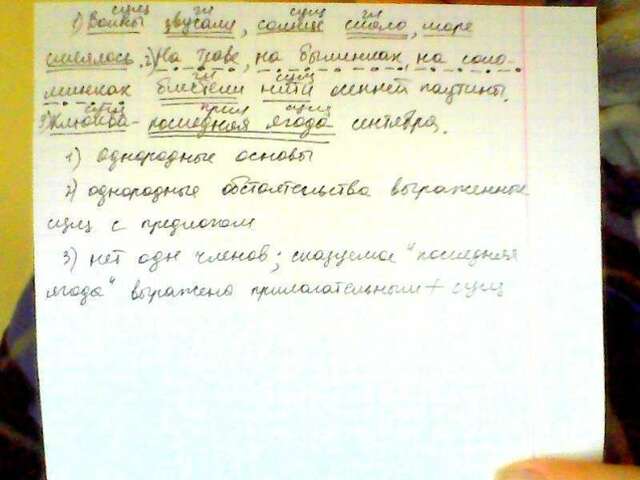 сущ гл сущ гл
1) Волны звучали, солнце сияло, море
смеялось. 2) На траве, на былинках, на соло-
гл сущ
минках блестели нити осенней паутины.
сущ прил сущ
3) Клюква - последняя ягода сентября.
1) однородные основы
2) однородные обстоятельства выраженные
сущ с предлогом
3) нет одн членов; сказуемое "последняя
ягода" выражено прилагательным + сущ